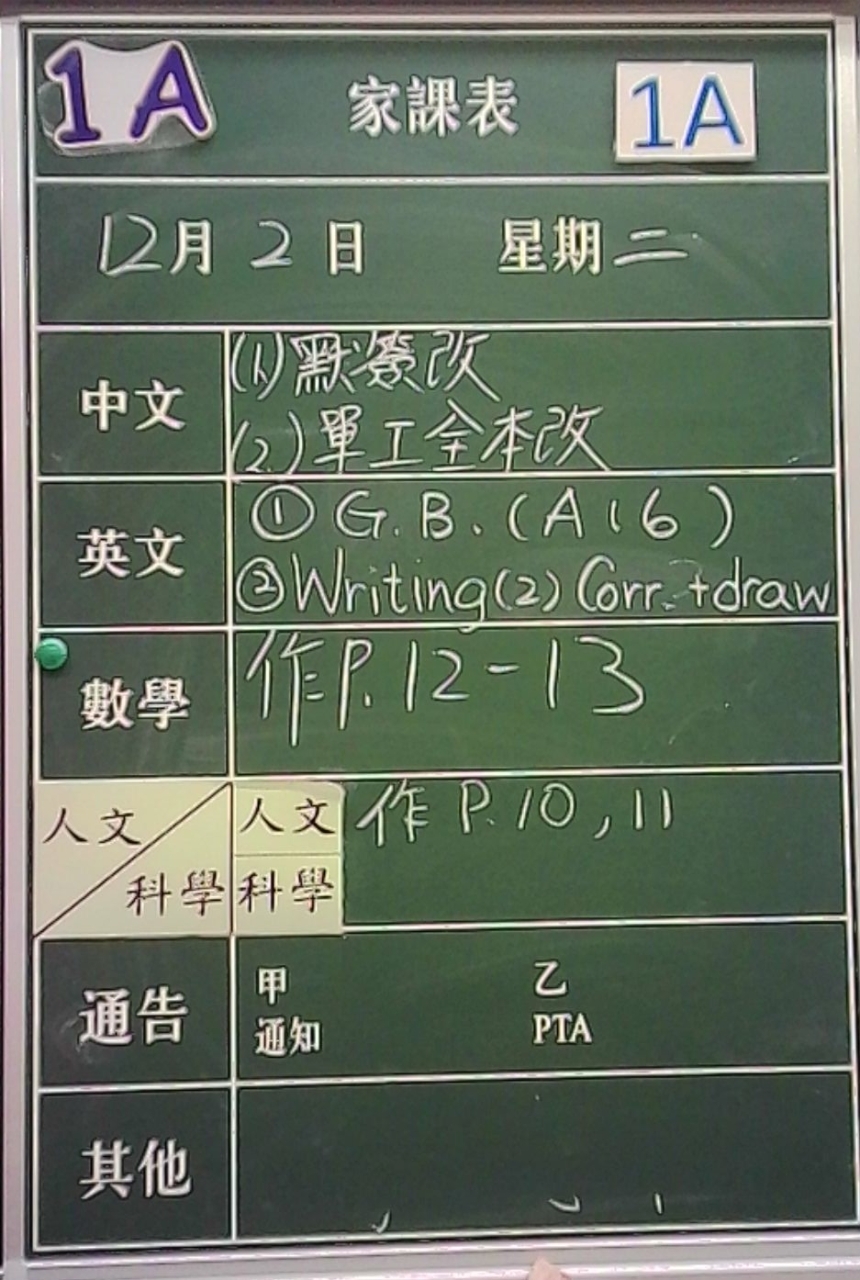 1A 家課表 1A
12月 2 日 星期二
中文 (1)默簽改
(2)單工全本改
英文 ① G.B. (A16)
② Writing(2) Corr. +draw
數學 作P.12-13
人文 科學 人文 作 P.10,11
科學
通告 甲 乙
通知 PTA
其他